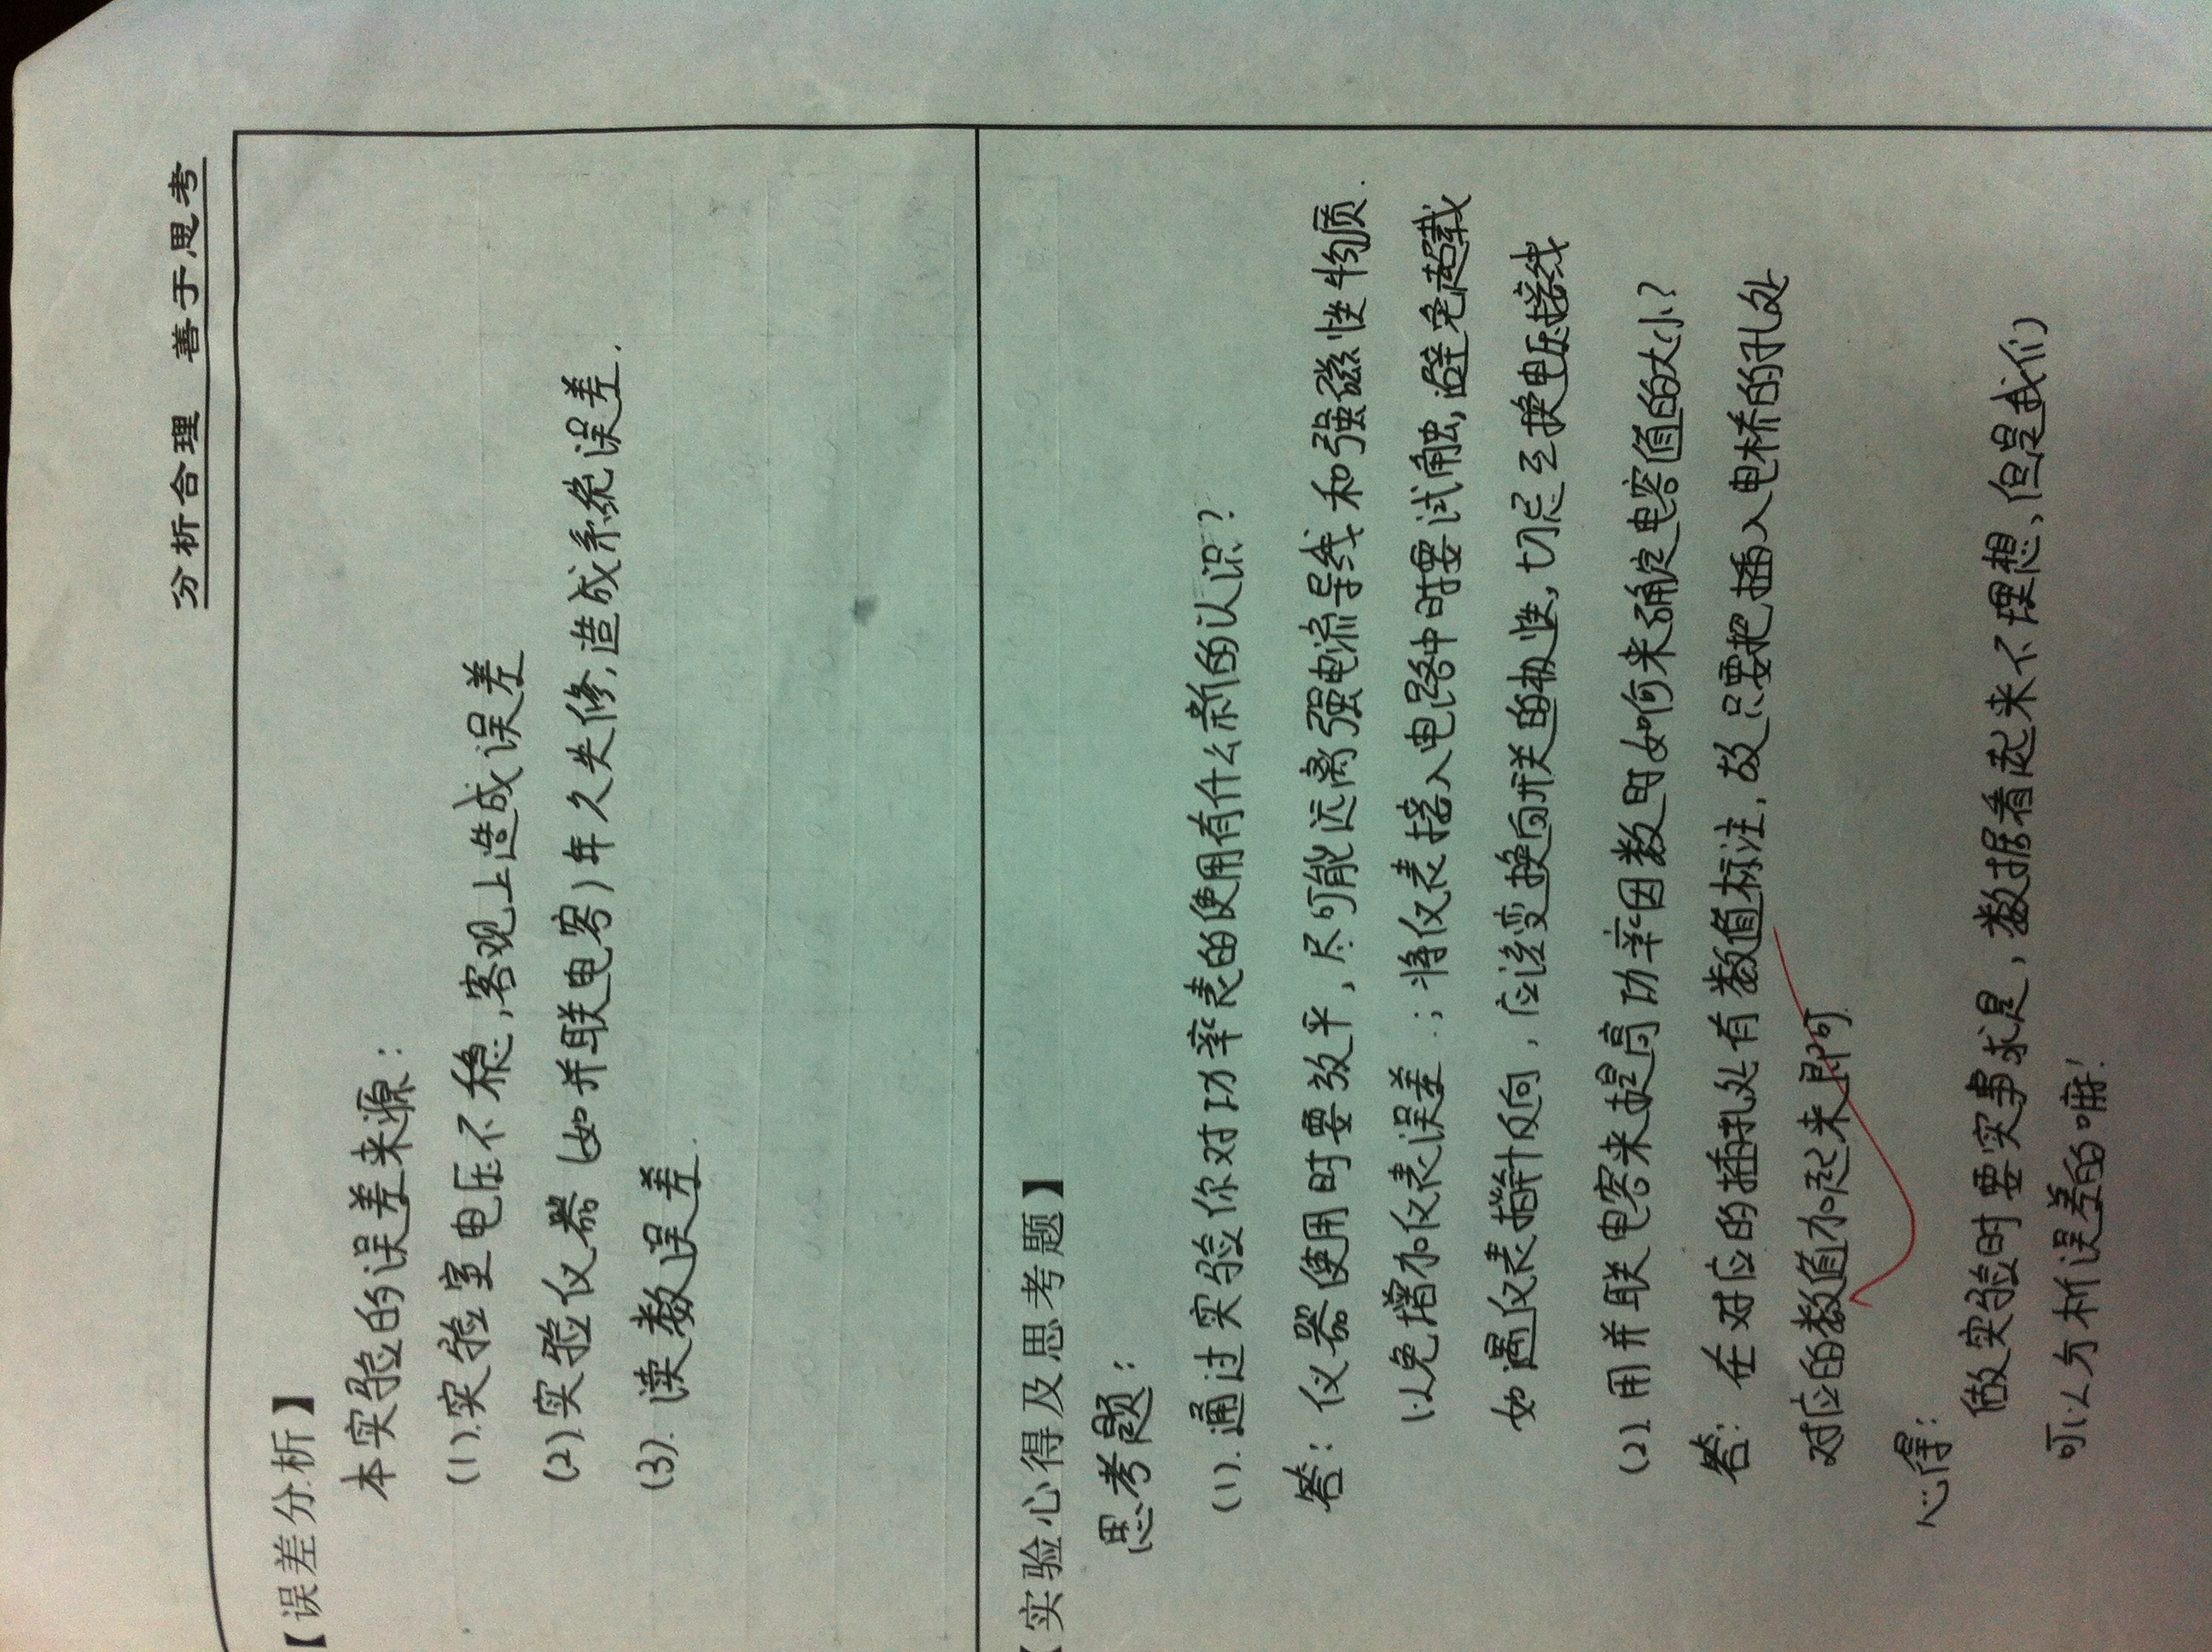 分析合理　善于思考
【误差分析】
本实验的误差来源：
(1).实验室电压不稳,客观上造成误差
(2).实验仪器(如并联电容)年久失修,造成系统误差.
(3).读数误差.
【实验心得及思考题】
思考题：
(1).通过实验你对功率表的使用有什么新的认识？
答：仪器使用时要放平,尽可能远离强电流导线和强磁性物质.
以免增加仪表误差；将仪表接入电路中时要试触,避免超载
如遇仪表指针反向,应该变换向开关的极性,切忌互换电压接线
(2).用并联电容来提高功率因数时如何来确定电容值的大小？
答：在对应的插孔处有数值标注,故只要把插入电桥的孔处
对应的数值加起来即可.
心得：
做实验时要实事求是,数据看起来不理想,但是我们
可以分析误差的嘛！